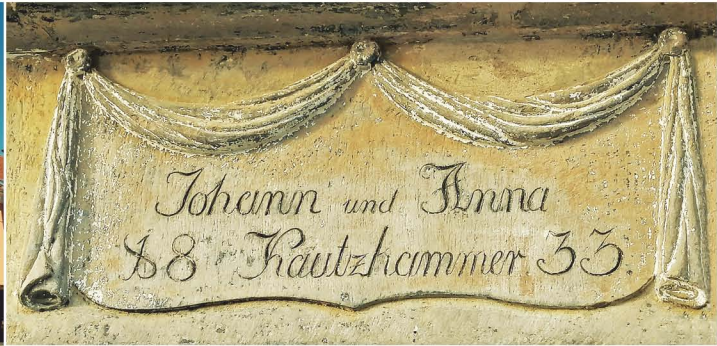 Johann und Anna
18 Kautzhammer 33.